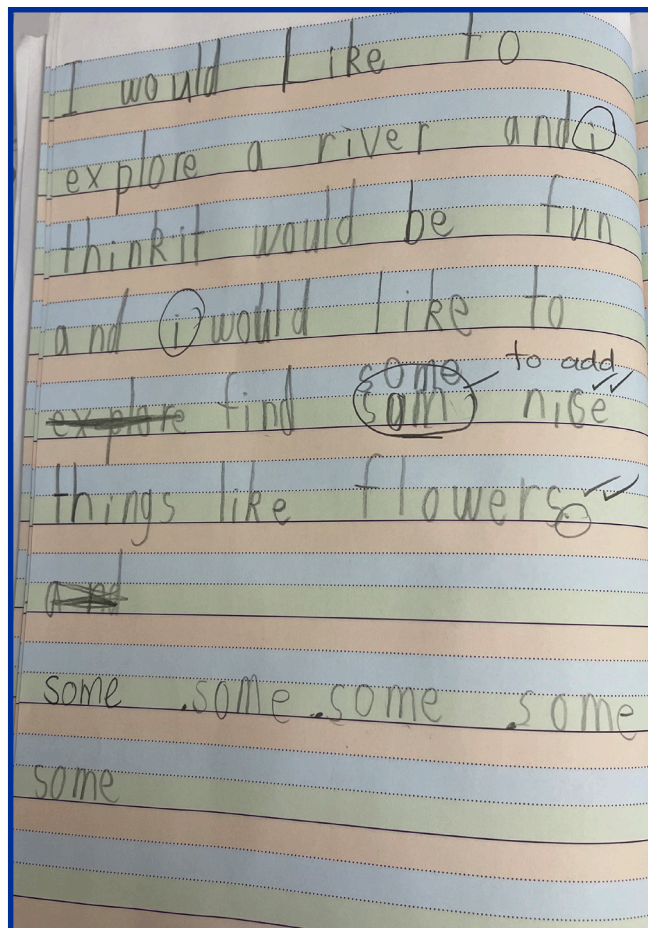 I would Like to
explore a river and i
think it would be fun
and i would like to
some to add
explore find sam nise
things like flowers.
and
some .some .some .some
some